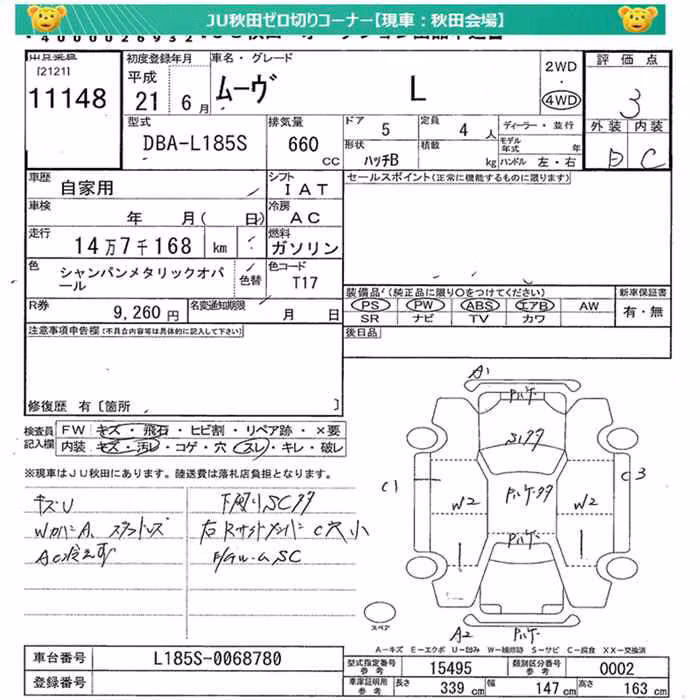 JU秋田ゼロ切りコーナー【現車：秋田会場】
[2121]
11148
初度登録年月
平成
21年6月
車名・グレード
ムーヴ L
2WD
4WD
評価点
3
外装 内装
C
型式
DBA-L185S
排気量
660 CC
ドア 5
定員 4人
形状 ハッチB
積載 kg
ディーラー・並行
モデル年式 年
ハンドル 左・右
車歴 自家用
シフト IAT
車検 年 月( 日)
冷房 AC
走行 14万7千168 km
燃料 ガソリン
色 シャンパンメタリックオパール
色替
色コード T17
R券 9,260円
名変通知期限 月 日
セールスポイント(正常に機能するものに限ります)
装備品(純正品に限り○をつけてください)
PS PW ABS エアB AW
SR ナビ TV カワ
新車保証書
有・無
後日品
注意事項申告欄(不具合内容等は具体的に記入して下さい)
修復歴 有〔箇所 〕
検査員記入欄
FW キズ・飛石・ヒビ割・リペア跡・×要
内装 キズ・汚レ・コゲ・穴・スレ・キレ・破レ
※現車はJU秋田にあります。陸送費は落札店負担となります。
キズU
下廻りSCクサ
A1
C1
W2
W2
C3
A2
スペア
A-キズ E-エクボ U-凹み W-補修跡 S-サビ C-腐食 XX-交換済
車台番号 L185S-0068780
登録番号
型式指定番号 参考 15495
類別区分番号 参考 0002
車庫証明用 参考 長さ 339 cm 幅 147 cm 高さ 163 cm